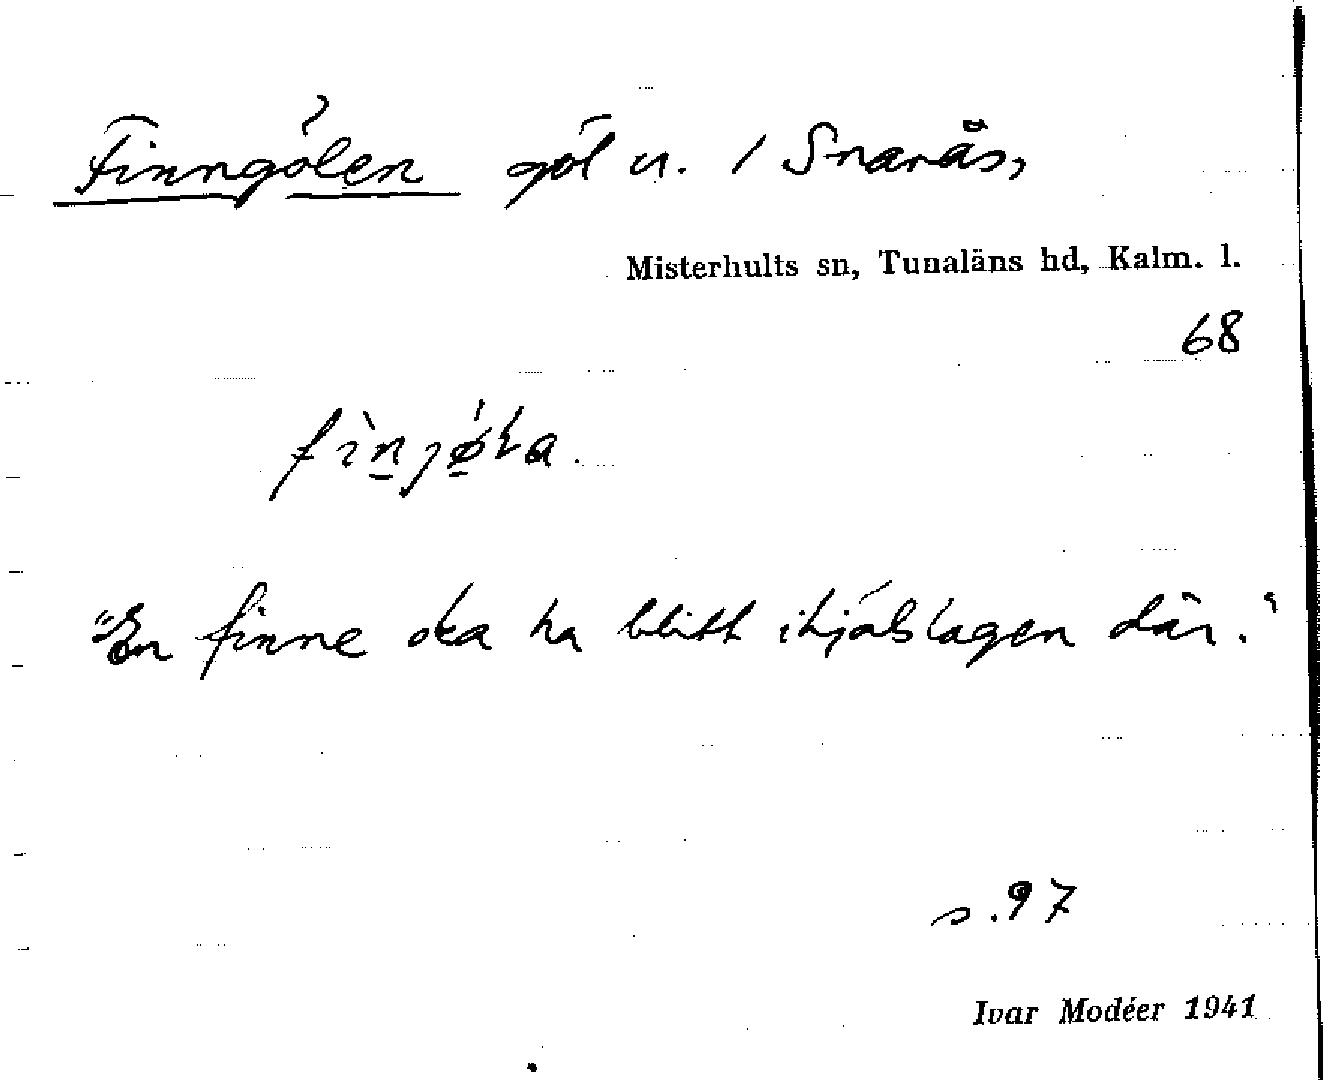 Finngölen göl u. / Snarås,
Misterhults sn, Tunaläns hd, Kalm. l.
68
"En finne ska ha blitt ihjälslagen där."
s. 97
Ivar Modéer 1941